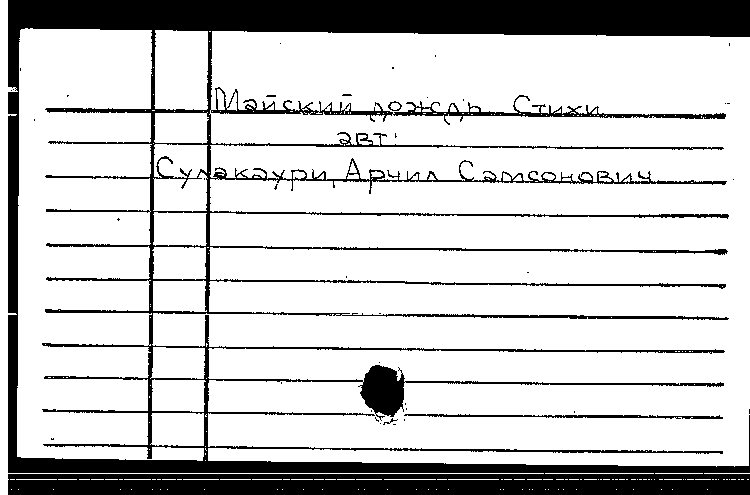 Майский дождь Стихи
авт:
Сулакаури, Арчил Самсонович